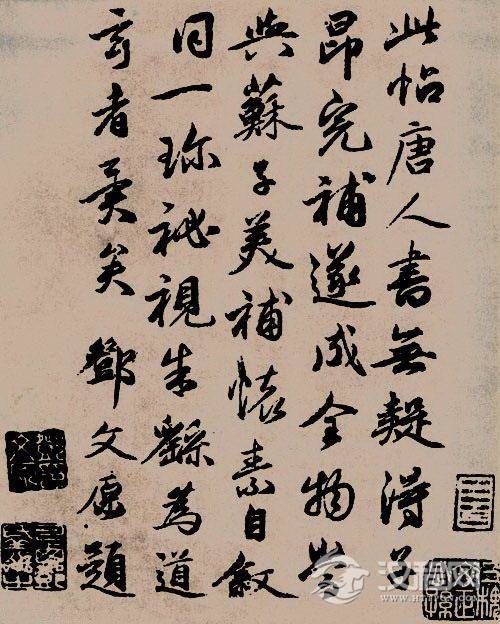 此帖唐人書無疑得子
昂完補遂成全物當
與蘇子美補懷素自敘
同一珍祕視朱繇為道
玄者異矣 鄧文原題
汉程网